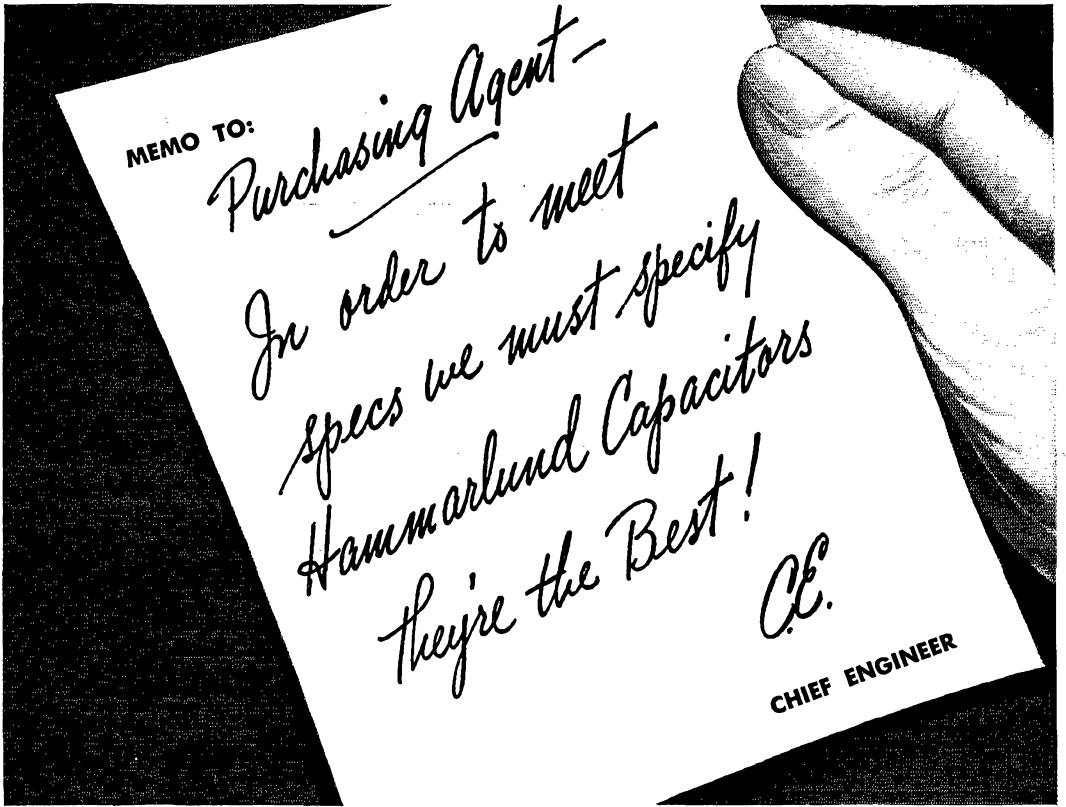 MEMO TO:
Purchasing Agent—
In order to meet
specs we must specify
Hammarlund Capacitors
they're the Best!
C.E.
CHIEF ENGINEER